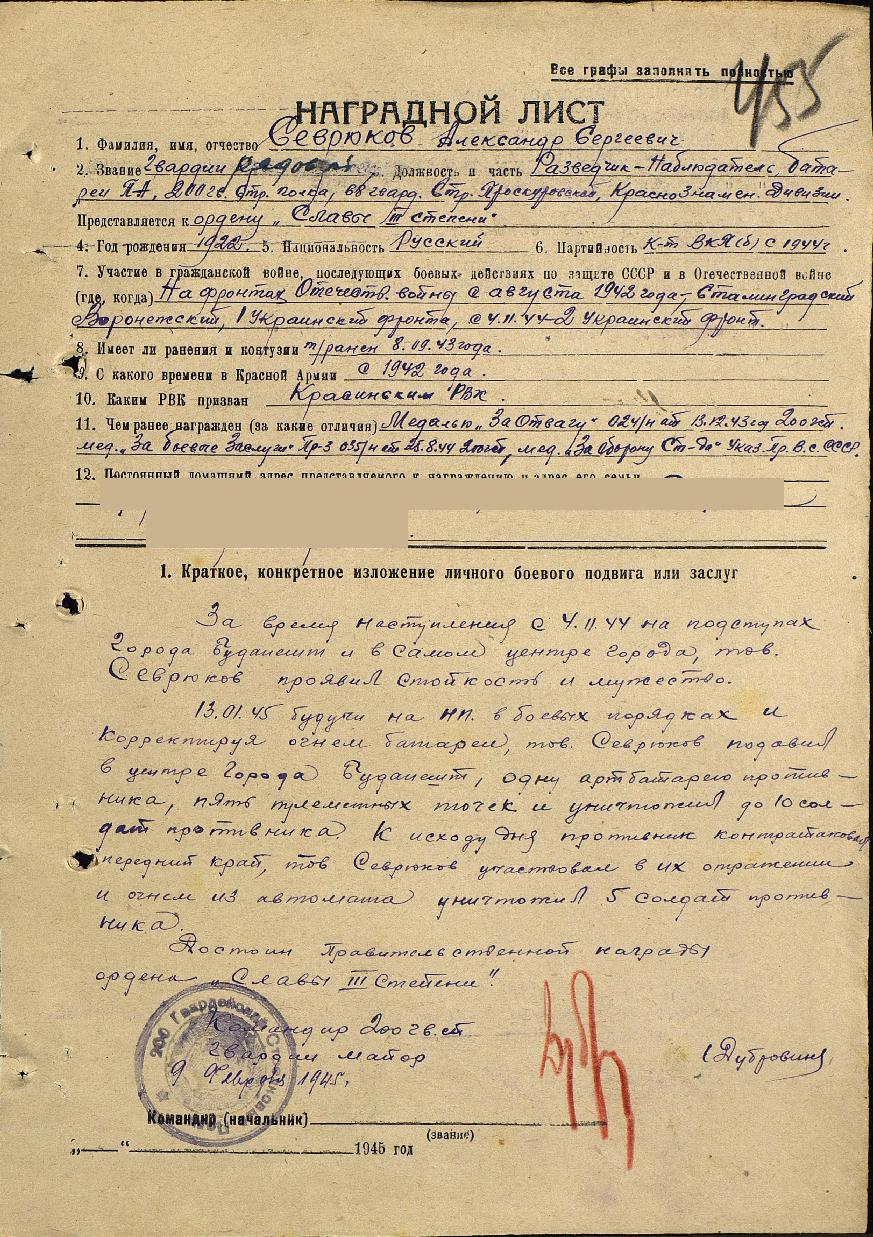 Все графы заполнять полностью
455
НАГРАДНОЙ ЛИСТ
1. Фамилия, имя, отчество Севрюков Александр Сергеевич
2. Звание гвардии рядовой Должность и часть Разведчик-Наблюдатель, бата-
реи ПА, 200 гв. стр. полка, 68 гвард. Стр. Проскуровской, Краснознамен. Дивизии.
Представляется к ордену „Славы III степени"
4. Год рождения 1922. 5. Национальность Русский 6. Партийность К-т ВКП(б) с 1944г.
7. Участие в гражданской войне, последующих боевых действиях по защите СССР и в Отечественной войне
(где, когда) На фронтах Отечеств. войны с августа 1942 года - Сталинградский
Воронежский, 1 Украинский фронта, с 4.11.44-2 Украинский фронт.
8. Имеет ли ранения и контузии т/ранен 8.09.43 года.
9. С какого времени в Красной Армии с 1942 года.
10. Каким РВК призван Красинским РВК
11. Чем ранее награжден (за какие отличия) Медалью „За Отвагу" 024/н от 13.12.43 год 200 гв.
мед. „За боевые Заслуги" Пр-з 035/н от 28.8.44 мед. „За Оборону Ст-да" Указ. Пр. В.С. СССР.
12. Постоянный домашний адрес представляемого к награждению и адрес его семьи
1. Краткое, конкретное изложение личного боевого подвига или заслуг
За время наступления с 4.11.44 на подступах
города Будапешт и в самом центре города, тов.
Севрюков проявил стойкость и мужество.
13.01.45 будучи на НП. в боевых порядках и
корректируя огнем батареи, тов. Севрюков подавил
в центре города Будапешт, одну артбатарею против-
ника, пять пулеметных точек и уничтожил до 10 сол-
дат противника. К исходу дня противник контратаковал
передний край, тов Севрюков участвовал в их отражении
и огнем из автомата уничтожил 5 солдат против-
ника.
Достоин Правительственной награды
ордена „Славы III Степени".
Командир 200 гв. сп
гвардии майор
(Дубровин)
9 Февраля 1945г.
200 Гвардейский Стрелковый Полк
Командир (начальник)
(звание)
„ “ 1945 год